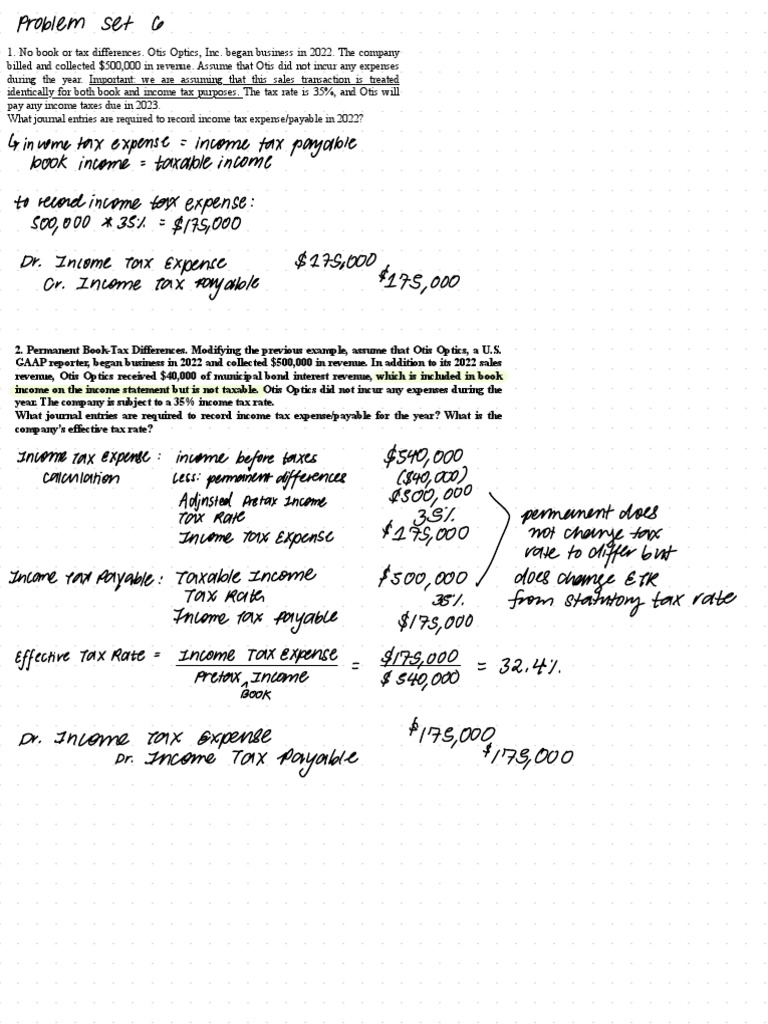 Problem Set 6
1. No book or tax differences. Otis Optics, Inc. began business in 2022. The company
billed and collected $500,000 in revenue. Assume that Otis did not incur any expenses
during the year. Important: we are assuming that this sales transaction is treated
identically for both book and income tax purposes. The tax rate is 35%, and Otis will
pay any income taxes due in 2023.
What journal entries are required to record income tax expense/payable in 2022?
↳ income tax expense = income tax payable
book income = taxable income
to record income tax expense:
500,000 * 35% = $175,000
Dr. Income Tax Expense $175,000
Cr. Income Tax Payable $175,000
2. Permanent Book-Tax Differences. Modifying the previous example, assume that Otis Optics, a U.S.
GAAP reporter, began business in 2022 and collected $500,000 in revenue. In addition to its 2022 sales
revenue, Otis Optics received $40,000 of municipal bond interest revenue, which is included in book
income on the income statement but is not taxable. Otis Optics did not incur any expenses during the
year. The company is subject to a 35% income tax rate.
What journal entries are required to record income tax expense/payable for the year? What is the
company's effective tax rate?
Income Tax Expense: income before taxes $540,000
Calculation Less: permanent differences ($40,000)
Adjusted Pretax Income $500,000
Tax Rate 35%
Income Tax Expense $175,000
permanent does
not change tax
rate to differ but
does change ETR
from statutory tax rate
Income Tax Payable: Taxable Income $500,000
Tax Rate 35%
Income Tax Payable $175,000
Effective Tax Rate = Income Tax Expense = $175,000 = 32.4%
Pretax Income $540,000
^ Book
Dr. Income Tax Expense $175,000
Dr. Income Tax Payable $175,000